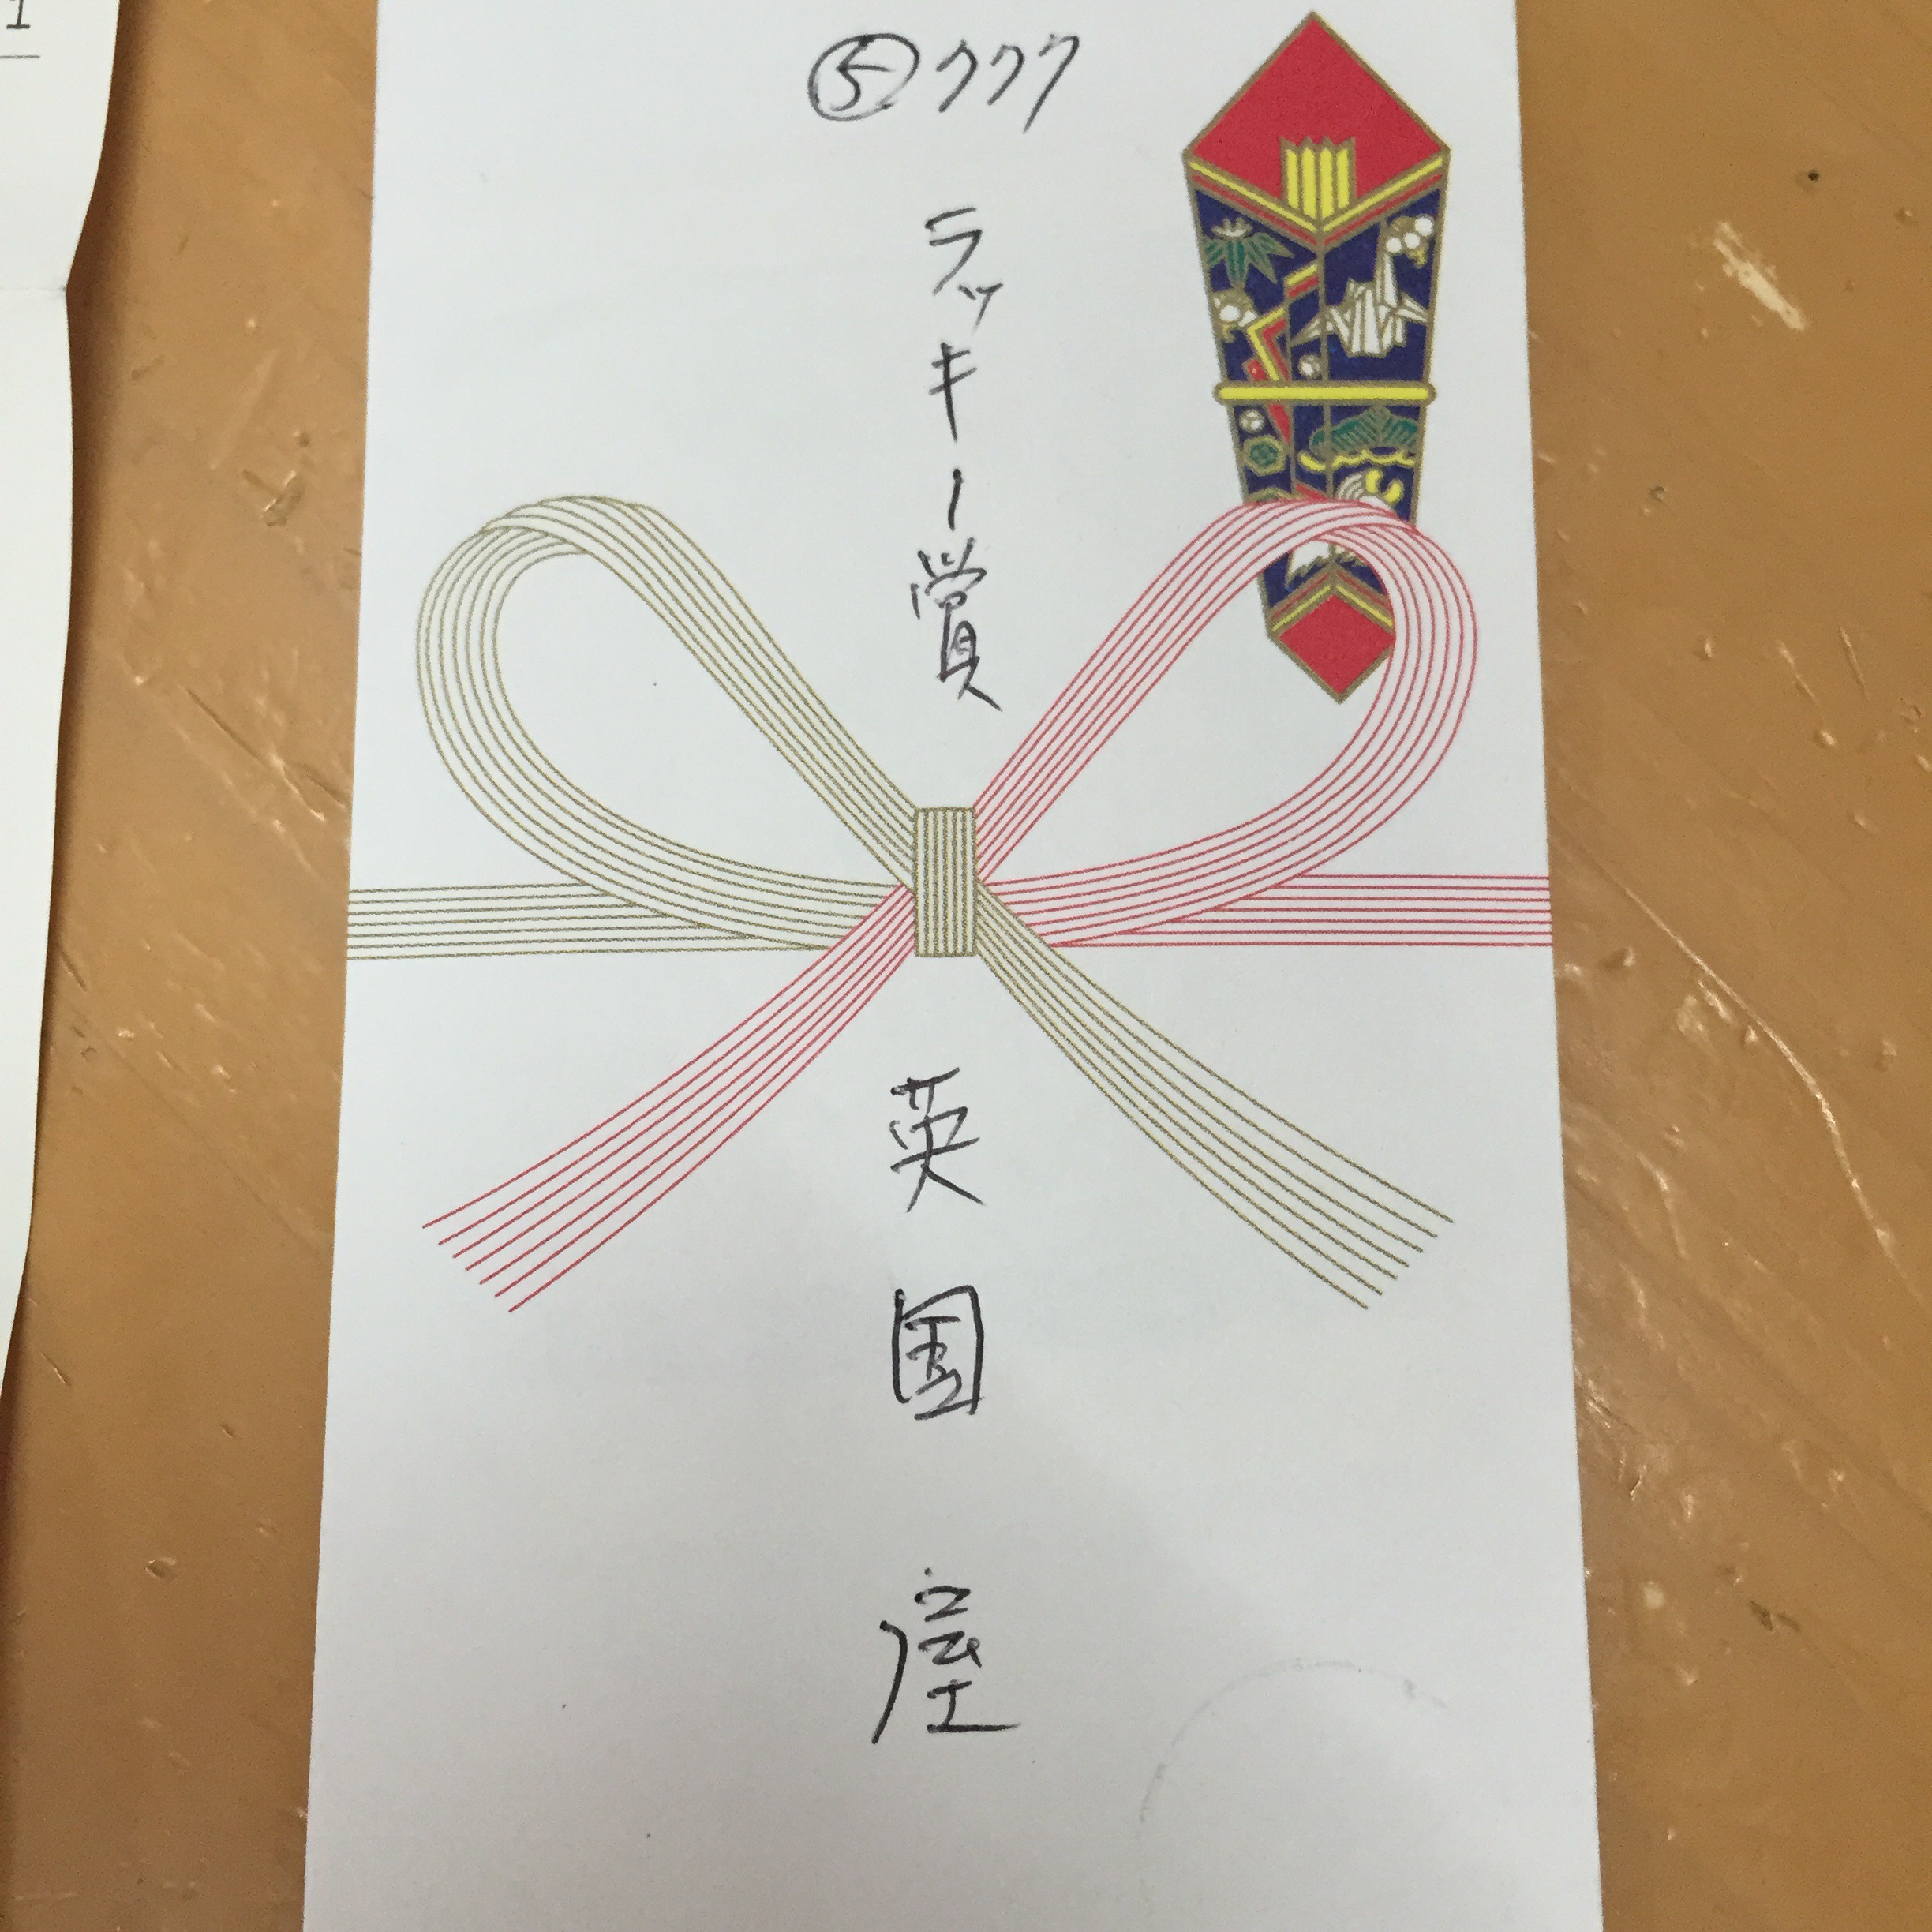 ⑤777
ラッキー賞
英国屋
1